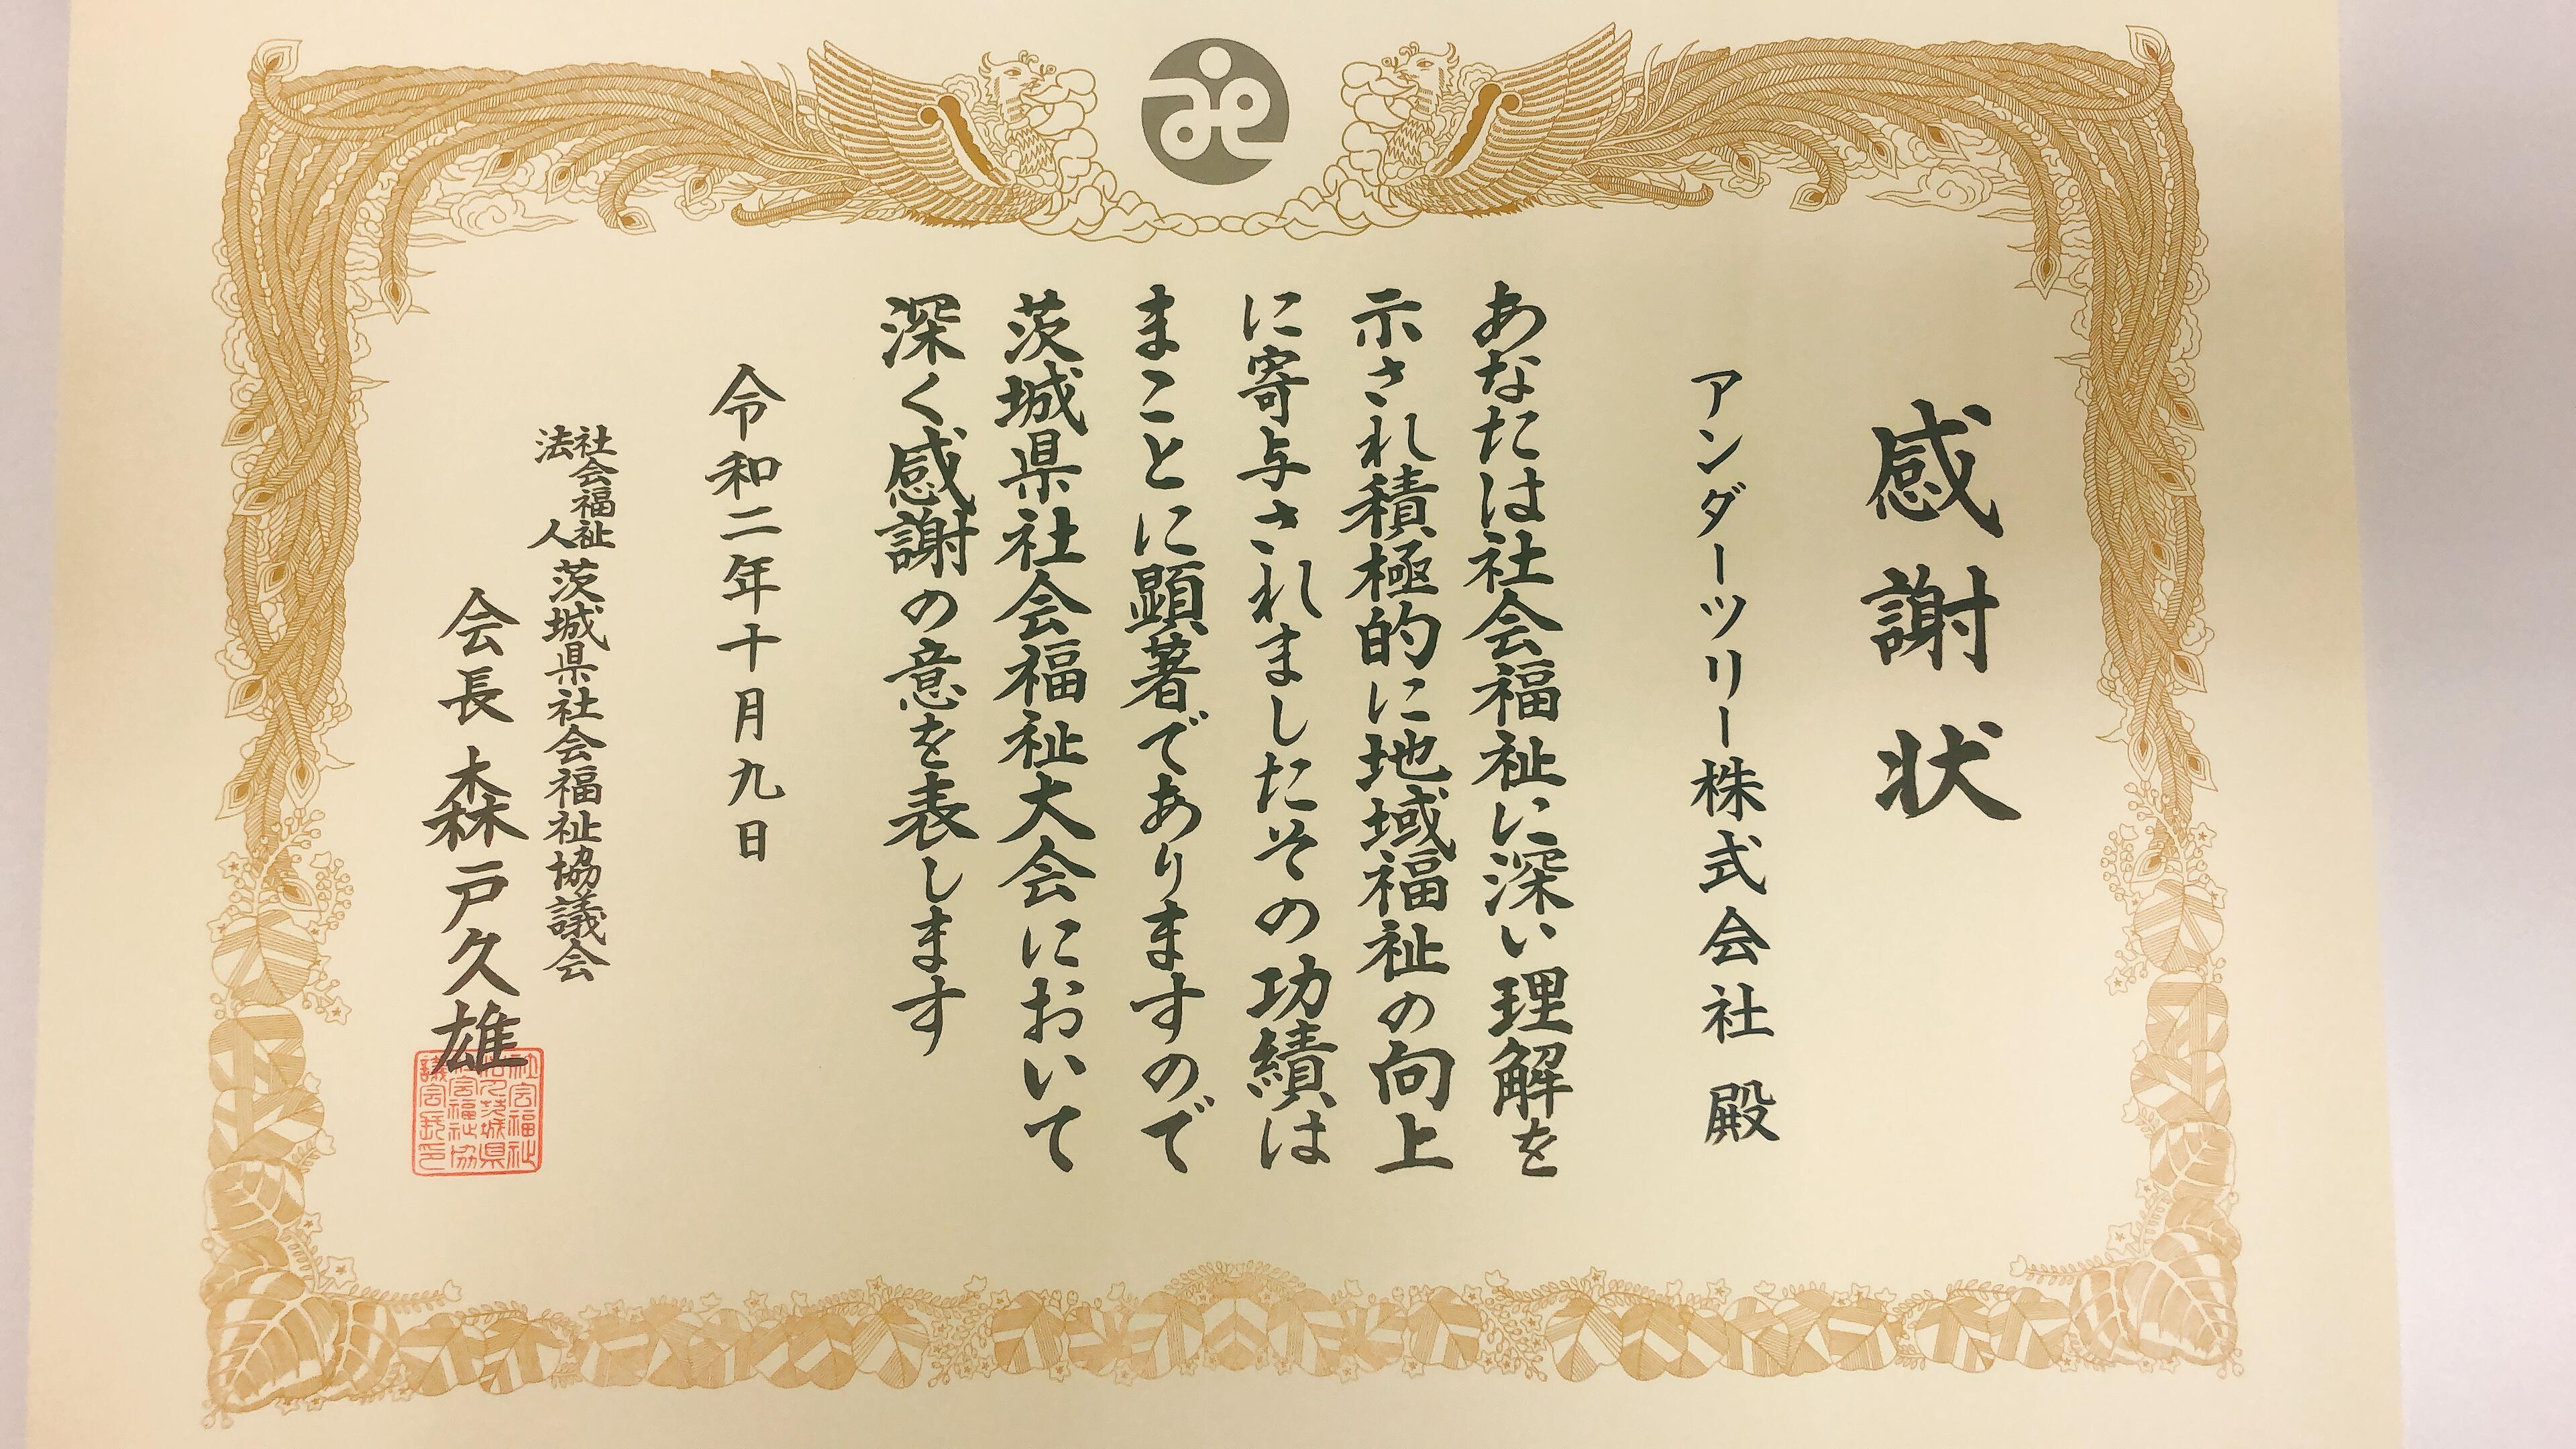 感謝状
アンダーツリー株式会社 殿
あなたは社会福祉に深い理解を
示され積極的に地域福祉の向上
に寄与されましたその功績は
まことに顕著でありますので
茨城県社会福祉大会において
深く感謝の意を表します
令和二年十月九日
社会福祉法人 茨城県社会福祉協議会
会長 森戸久雄